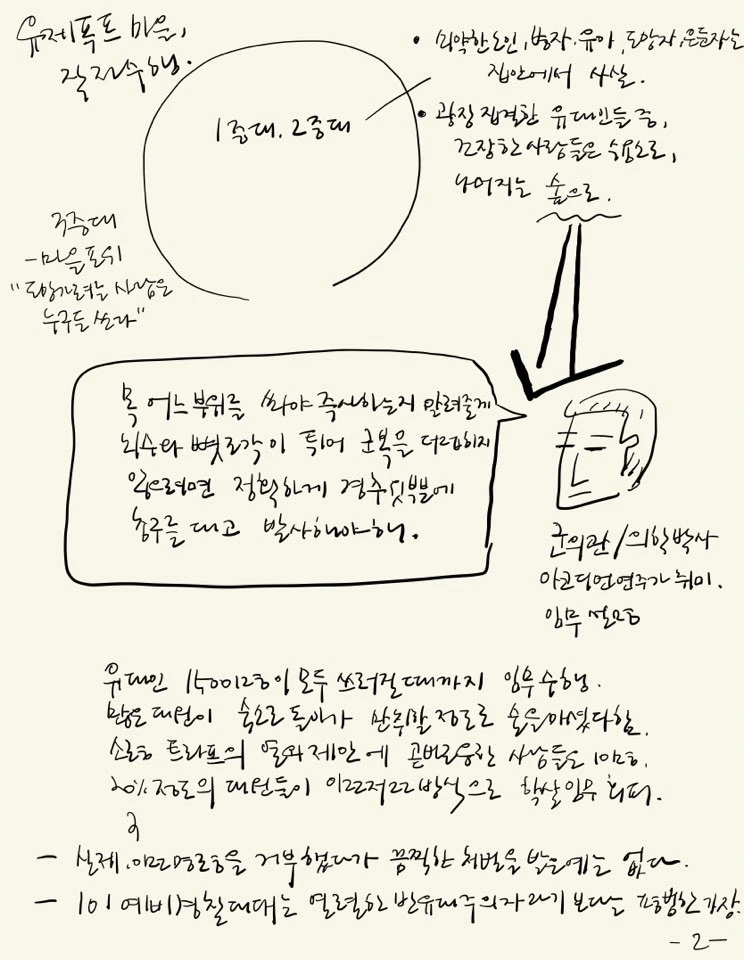 유제푸프 마을,
작전수행.
1중대, 2중대
• 허약한 노인, 병자, 유아, 도망자, 은둔자는
집안에서 사살.
• 광장 집결한 유대인들 중,
건장한 사람들은 수용소로,
나머지는 숲으로.
3중대
- 마을포위
"도망가려는 사람은
누구든 쏜다"
목 어느부위를 쏴야 즉사하는지 알려줄게
뇌수와 뼛조각이 튀어 군복을 더럽히지
않으려면 정확하게 경추 윗부분에
총구를 대고 발사해야해.
군의관/의학박사
아코디언연주가 취미.
임무
유대인 1500명이 모두 쓰러질때까지 임무수행.
많은 대원이 숙소로 돌아가 만취할 정도로 술을 마셨다함.
트라프의 제안에 사람들은
20% 정도의 대원들이 이런저런 방식으로 학살임무 회피.
- 실제, 명령을 거부했다가 끔찍한 처벌을 받은예는 없다.
- 101 예비경찰대대는 열렬한 반유대주의자라기 보다는 평범한 가장.
-2-